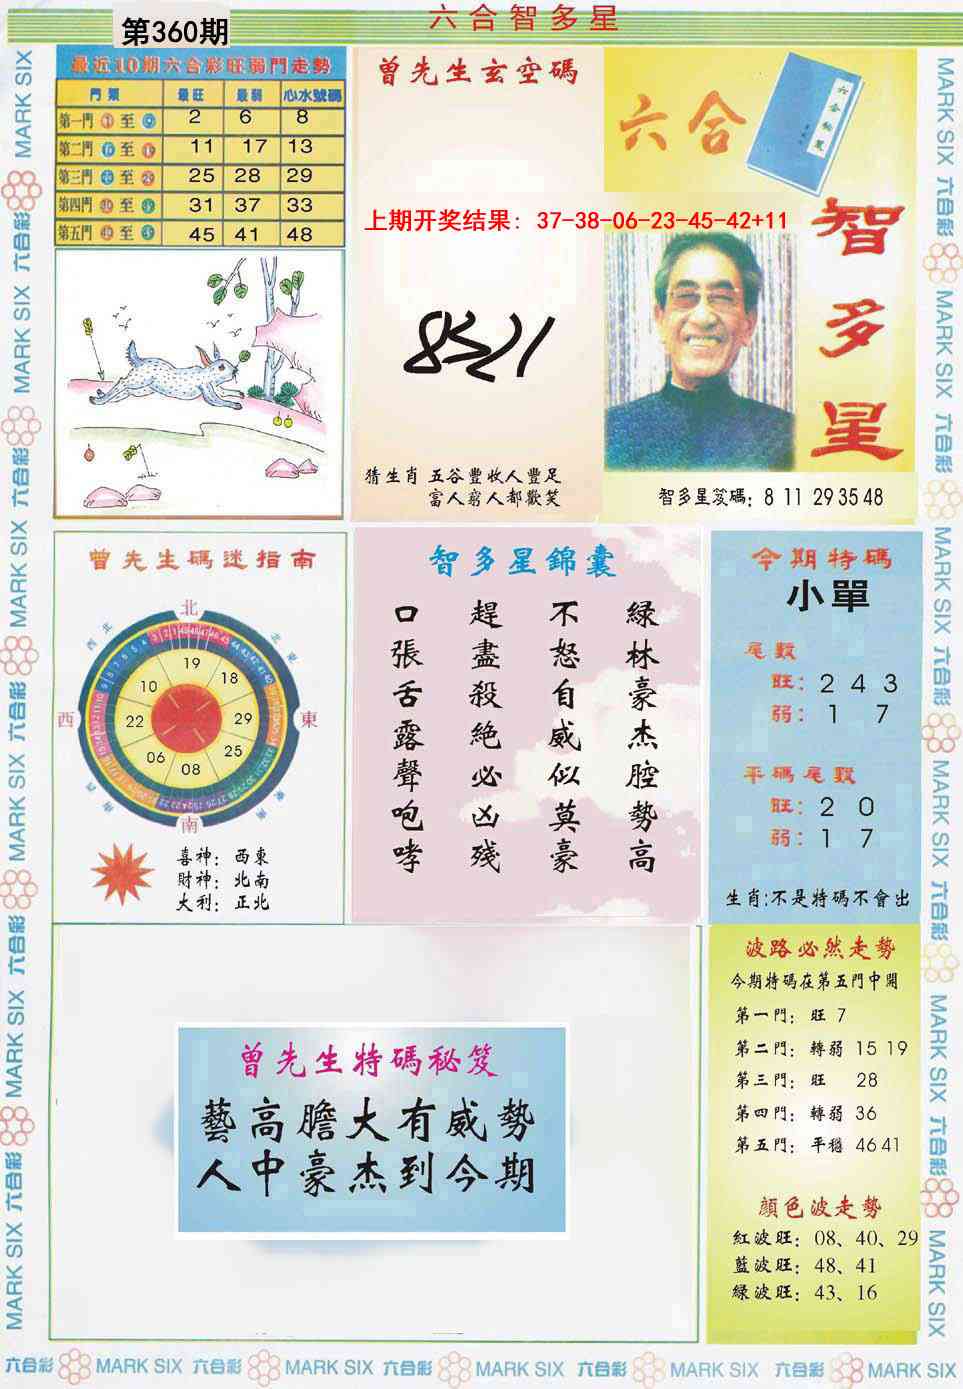 六合智多星
第360期
最近10期六合彩旺弱門走勢
門類 最旺 最弱 心水號碼
第一門 至 2 6 8
第二門 至 11 17 13
第三門 至 25 28 29
第四門 至 31 37 33
第五門 至 45 41 48
曾先生玄空碼
上期开奖结果：37-38-06-23-45-42+11
猜生肖 五谷豐收人豐足
富人窮人都歡笑
六合
智多星
智多星笈碼：8 11 29 35 48
曾先生碼迷指南
北
西北
北東
西
東
南西
東南
南
19
18
29
25
08
06
22
10
喜神：西東
財神：北南
大利：正北
智多星錦囊
綠林豪杰腔勢高
不怒自威似莫豪
趕盡殺絕必凶殘
口張舌露聲咆哮
今期特碼
小單
尾數
旺：2 4 3
弱：1 7
平碼尾數
旺：2 0
弱：1 7
生肖:不是特碼不會出
曾先生特碼秘笈
藝高膽大有威勢
人中豪杰到今期
波路必然走勢
今期特碼在第五門中開
第一門：旺 7
第二門：轉弱 15 19
第三門：旺 28
第四門：轉弱 36
第五門：平穩 46 41
顔色波走勢
紅波旺：08、40、29
藍波旺：48、41
綠波旺：43、16
六合彩 MARK SIX 六合彩 MARK SIX 六合彩 MARK SIX 六合彩 MARK SIX 六合彩 MARK SIX